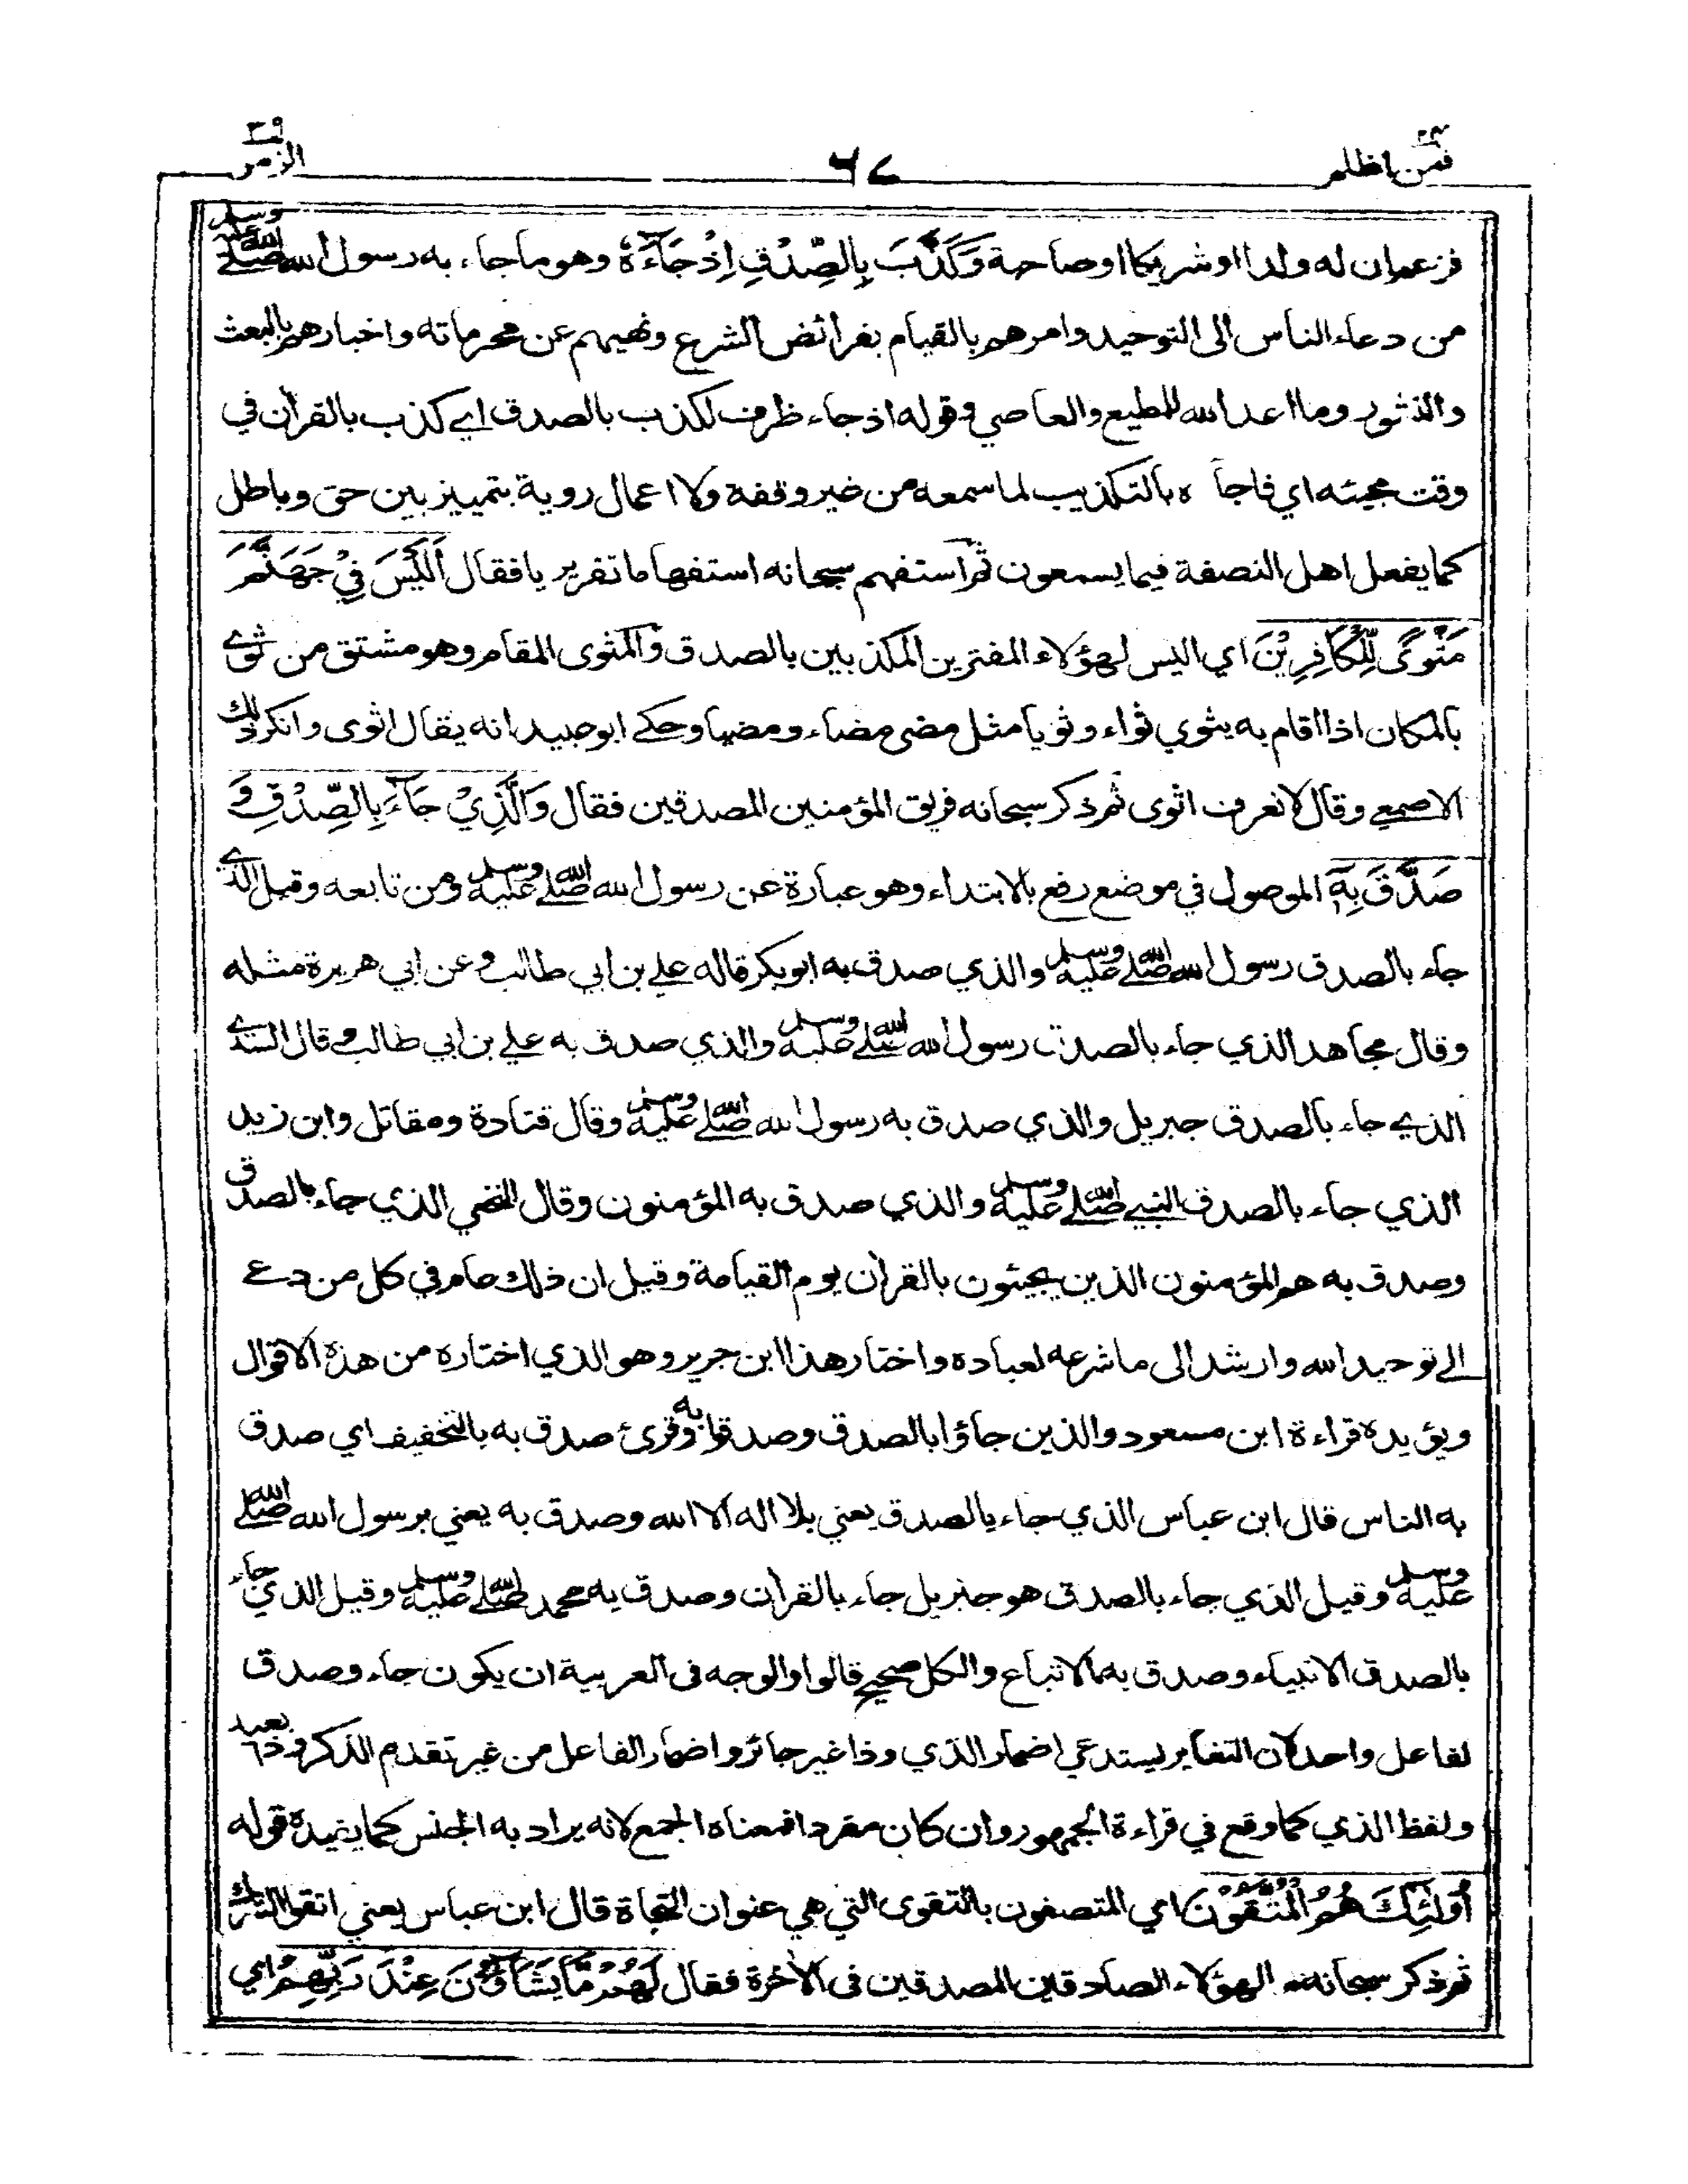 فمن اظلم ٢٤
٦٧
الزمر ٣٩
فزعم ان له ولدا او شريكا او صاحبة وَكَذَّبَ بِالصِّدْقِ اِذْ جَآءَهٗ وهو ما جاء به رسول الله صلى الله عليه وسلم
من دعاء الناس الى التوحيد وامرهم بالقيام بفرائض الشرع ونهيهم عن محرماته واخبارهم بالبعث
والنشور وما اعد الله للمطيع والعاصي وقوله اذ جاء ظرف لكذب بالصدق اي كذب بالقرآن في
وقت مجيئه اي فاجأ ه بالتكذيب لما سمعه من غير وقفة ولا اعمال روية بتمييز بين حق وباطل
كما يفعل اهل النصفة فيما يسمعون ثم استفهم سبحانه استفهاما تقريريا فقال اَلَيْسَ فِيْ جَهَنَّمَ
مَثْوًى لِّلْكَافِرِيْنَ اي اليس لهؤلاء المفترين المكذبين بالصدق والمثوى المقام وهو مشتق من ثوى
بالمكان اذا اقام به يثوي ثواء وثويا مثل مضى مضاء ومضيا وحكى ابو عبيد انه يقال اثوى وانكر ذلك
الاصمعي وقال لا نعرف اثوى ثم ذكر سبحانه فريق المؤمنين المصدقين فقال وَالَّذِيْ جَآءَ بِالصِّدْقِ وَ
صَدَّقَ بِهٖٓ الموصول في موضع رفع بالابتداء وهو عبارة عن رسول الله صلى الله عليه وسلم ومن تابعه وقيل الذي
جاء بالصدق رسول الله صلى الله عليه وسلم والذي صدق به ابو بكر قاله علي بن ابي طالب وعن ابي هريرة مثله
وقال مجاهد الذي جاء بالصدق رسول الله صلى الله عليه وسلم والذي صدق به علي بن ابي طالب وقال السدي
الذي جاء بالصدق جبريل والذي صدق به رسول الله صلى الله عليه وسلم وقال قتادة ومقاتل وابن زيد
الذي جاء بالصدق النبي صلى الله عليه وسلم والذي صدق به المؤمنون وقال النخعي الذي جاء بالصدق
وصدق به هم المؤمنون الذين يجيئون بالقرآن يوم القيامة وقيل ان ذلك عام في كل من دعى
الى توحيد الله وارشد الى ما شرعه لعباده واختار هذا ابن جرير وهو الذي اختاره من هذه الاقوال
ويؤيده قراءة ابن مسعود والذين جاؤا بالصدق وصدقوا به وقرئ صدق به بالتخفيف اي صدق
به الناس قال ابن عباس الذي جاء بالصدق يعني بلا اله الا الله وصدق به يعني برسول الله صلى الله
عليه وسلم وقيل الذي جاء بالصدق هو جبريل جاء بالقرآن وصدق به محمد صلى الله عليه وسلم وقيل الذي جاء
بالصدق الانبياء وصدق به الاتباع والكل صحيح قالوا والوجه فى العربية ان يكون جاء وصدق
لفاعل واحد لان التغاير يستدعي اضمار الذي وذا غير جائز واضمار الفاعل من غير تقدم الذكر وذا بعيد
ولفظ الذي كما وقع في قراءة الجمهور وان كان مفردا فمعناه الجمع لانه يراد به الجنس كما يفيده قوله
اُولٰٓئِكَ هُمُ الْمُتَّقُوْنَ اي المتصفون بالتقوى التي هي عنوان النجاة قال ابن عباس يعني اتقوا الشرك
ثم ذكر سبحانه ما لهؤلاء الصادقين المصدقين فى الآخرة فقال لَهُمْ مَّا يَشَآؤُوْنَ عِنْدَ رَبِّهِمْ اي